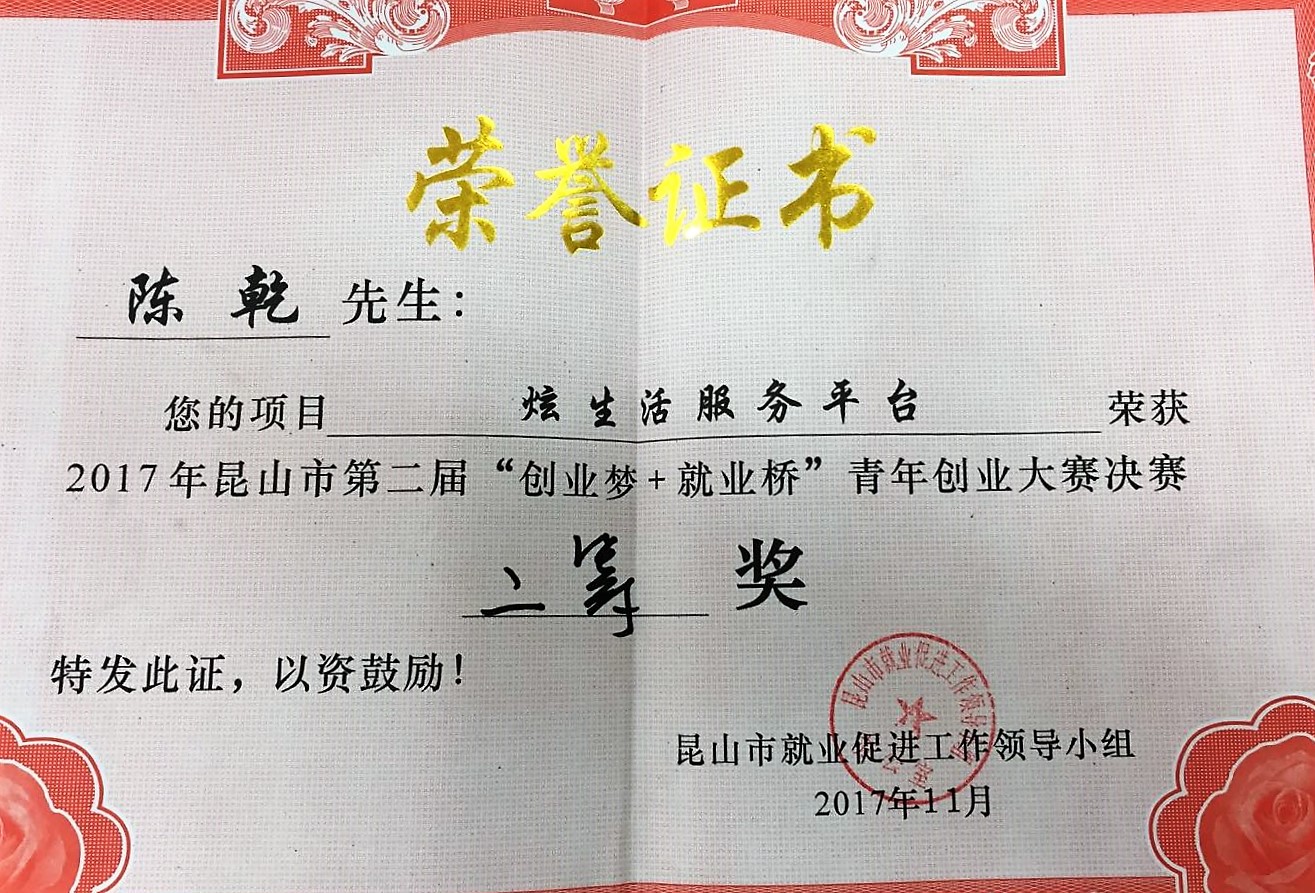 荣誉证书
陈乾 先生：
您的项目 炫生活服务平台 荣获
2017年昆山市第二届“创业梦+就业桥”青年创业大赛决赛
二等 奖
特发此证，以资鼓励！
昆山市就业促进工作领导
公室
昆山市就业促进工作领导小组
2017年11月